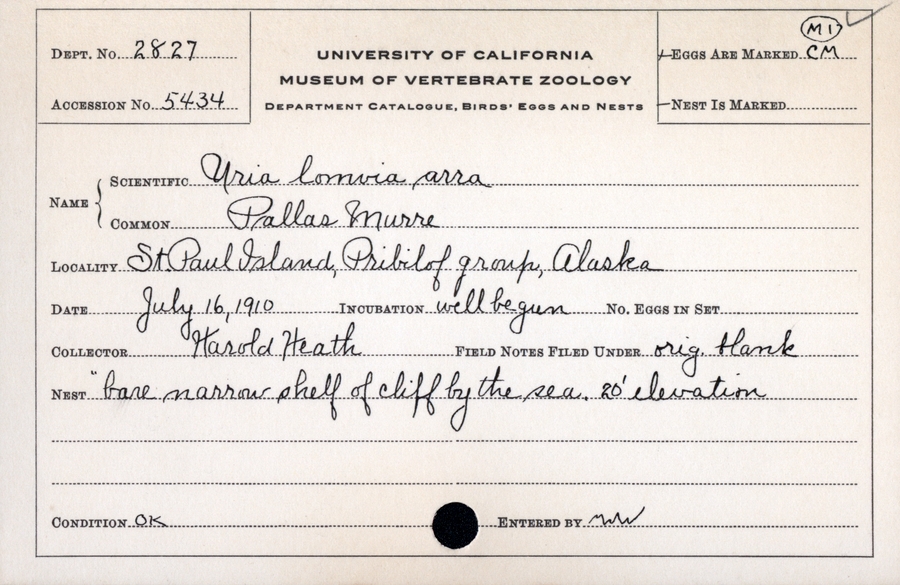 M1
DEPT. No. 2827
UNIVERSITY OF CALIFORNIA
EGGS ARE MARKED CM
MUSEUM OF VERTEBRATE ZOOLOGY
ACCESSION No. 5434
DEPARTMENT CATALOGUE, BIRDS' EGGS AND NESTS
NEST IS MARKED
NAME
SCIENTIFIC Uria lomvia arra
COMMON Pallas Murre
LOCALITY St. Paul Island, Pribilof group, Alaska
DATE July 16, 1910 INCUBATION well begun No. EGGS IN SET
COLLECTOR Harold Heath FIELD NOTES FILED UNDER orig. blank
NEST "bare narrow shelf of cliff by the sea. 20' elevation
CONDITION OK ENTERED BY